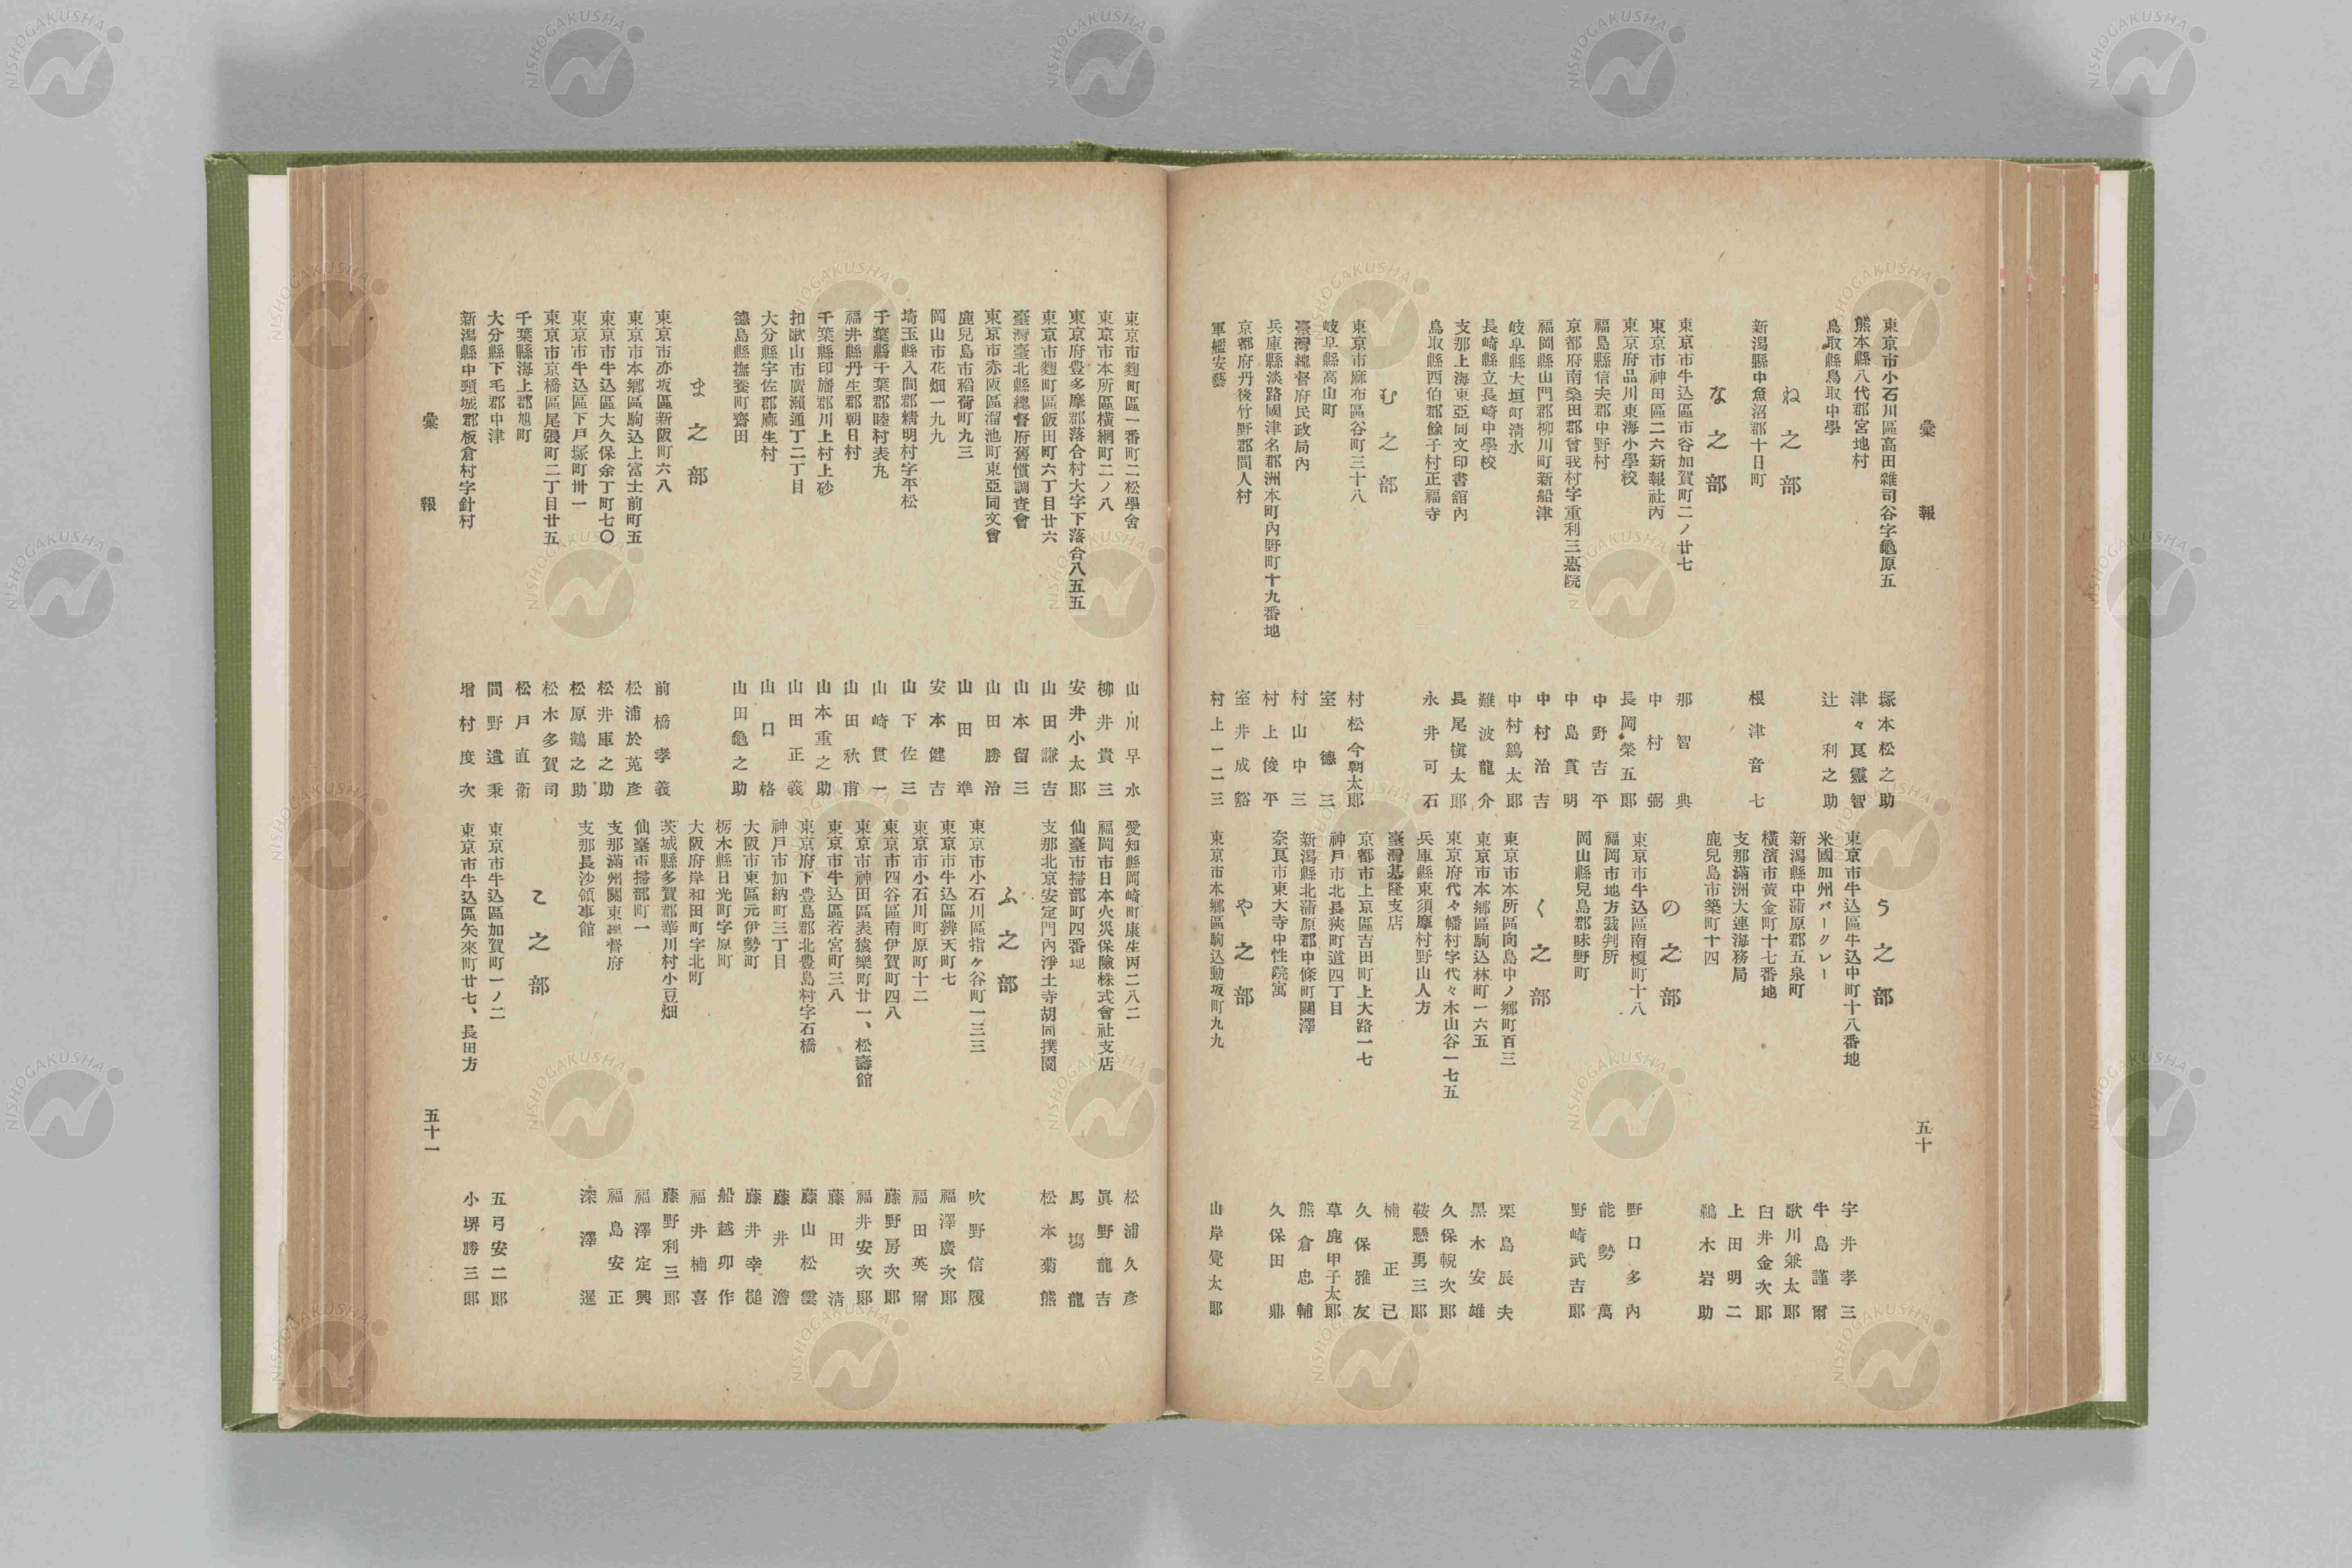 彙報
五十
東京市小石川區高田雜司谷字龜原五 塚本松之助
熊本縣八代郡宮地村 津々良靈智
鳥取縣鳥取中學 辻利之助
ね之部
新潟縣中魚沼郡十日町 根津音七
な之部
東京市牛込區市谷加賀町二ノ廿七 那智典
東京市神田區二六新報社內 中村弼
東京府品川東海小學校 長岡榮五郎
福島縣信夫郡中野村 中野吉平
京都府南桑田郡曾我村字重利三惠院 中島貫明
福岡縣山門郡柳川町新船津 中村治吉
岐阜縣大垣町淸水 中村鷄太郎
長崎縣立長崎中學校 難波龍介
支那上海東亞同文印書舘內 長尾槇太郎
鳥取縣西伯郡餘子村正福寺 永井可石
む之部
東京市麻布區谷町三十八 村松今朝太郎
岐阜縣高山町 室德三
臺灣總督府民政局內 村山中三
兵庫縣淡路國津名郡洲本町內野町十九番地 村上俊平
京都府丹後竹野郡間人村 室井成谿
軍艦安藝 村上一二三
う之部
東京市牛込區牛込中町十八番地 宇井孝三
米國加州バークレー 牛島謹爾
新潟縣中蒲原郡五泉町 歌川兼太郎
橫濱市黃金町十七番地 臼井金次郎
支那滿洲大連海務局 上田明二
鹿兒島市築町十四 鵜木岩助
の之部
東京市牛込區南榎町十八 野口多內
福岡市地方裁判所 能勢萬
岡山縣兒島郡味野町 野崎武吉郎
く之部
東京市本所區向島中ノ鄕町百三 栗島辰夫
東京市本鄕區駒込林町一六五 黑木安雄
東京府代々幡村字代々木山谷一七五 久保輗次郎
兵庫縣東須摩村野山人方 鞍懸勇三郎
臺灣基隆支店 楠正己
京都市上京區吉田町上大路一七 久保雅友
神戶市北長狹町道四丁目 草鹿甲子太郎
新潟縣北蒲原郡中條町關澤 熊倉忠輔
奈良市東大寺中性院寓 久保田鼎
や之部
東京市本鄕區駒込動坂町九九 山岸覺太郎
東京市麴町區一番町二松學舍 山川早水
東京市本所區橫網町二ノ八 柳井貴三
東京府豊多摩郡落合村大字下落合八五五 安井小太郎
東京市麴町區飯田町六丁目廿六 山田謙吉
臺灣臺北縣總督府舊慣調査會 山本留三
東京市赤阪區溜池町東亞同文會 山田勝治
鹿兒島市稻荷町九三 山田準
岡山市花畑一九九 安本健吉
埼玉縣入間郡精明村字平松 山下佐三
千葉縣千葉郡睦村表丸 山崎貫一
福井縣丹生郡朝日村 山田秋甫
千葉縣印旛郡川上村上砂 山本重之助
和歌山市廣瀨通丁二丁目 山田正義
大分縣宇佐郡麻生村 山口格
德島縣撫養町齋田 山田龜之助
ま之部
東京市赤坂區新阪町六八 前橋孝義
東京市本鄕區駒込上富士前町五 松浦於菟彥
東京市牛込區大久保余丁町七〇 松井庫之助
東京市牛込區下戶塚町卅一 松原鶴之助
東京市京橋區尾張町二丁目廿五 松木多賀司
千葉縣海上郡旭町 松戶直衞
大分縣下毛郡中津 間野遺秉
新潟縣中頸城郡板倉村字針村 增村度次
愛知縣岡崎町康生丙二八二 松浦久彥
福岡市日本火災保險株式會社支店 眞野龍吉
仙臺市掃部町四番地 馬塲龍
支那北京安定門內淨土寺胡同撲園 松本菊熊
ふ之部
東京市小石川區指ヶ谷町一三三 吹野信履
東京市牛込區辨天町七 福澤廣次郎
東京市小石川町原町十二 福田英爾
東京市四谷區南伊賀町四八 藤野房次郎
東京市神田區表猿樂町廿一、松壽館 福井安次郎
東京市牛込區若宮町三八 藤田淸
東京府下豊島郡北豊島村字石橋 藤山松雲
神戶市加納町三丁目 藤井濳
大阪市東區元伊勢町 藤井幸槌
栃木縣日光町字原町 船越卯作
大阪府岸和田町字北町 福井楠喜
茨城縣多賀郡華川村小豆畑 藤野利三郎
仙臺市掃部町一 福澤定興
支那滿州關東總督府 福島安正
支那長沙領事館 深澤暹
こ之部
東京市牛込區加賀町一ノ二 五弓安二郎
東京市牛込區矢來町廿七、長田方 小堺勝三郎
彙報
五十一